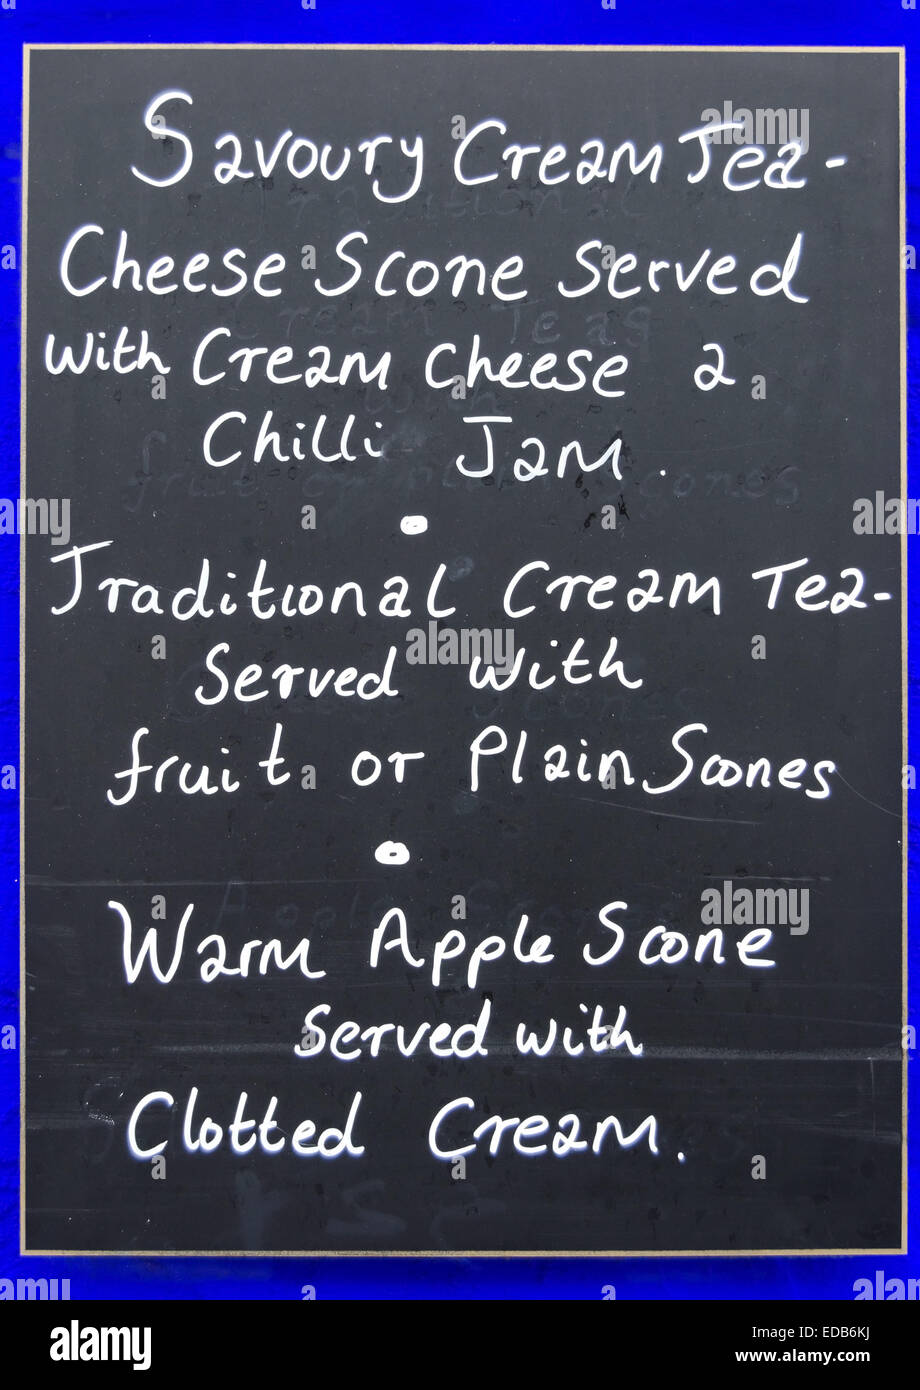 Savoury Cream Tea-
Cheese Scone Served
with Cream Cheese a
Chilli Jam.
Traditional Cream Tea-
Served with
fruit or Plain Scones
Warm Apple Scone
Served with
Clotted Cream.
alamy stock photo
EDB6KJ
www.alamy.com